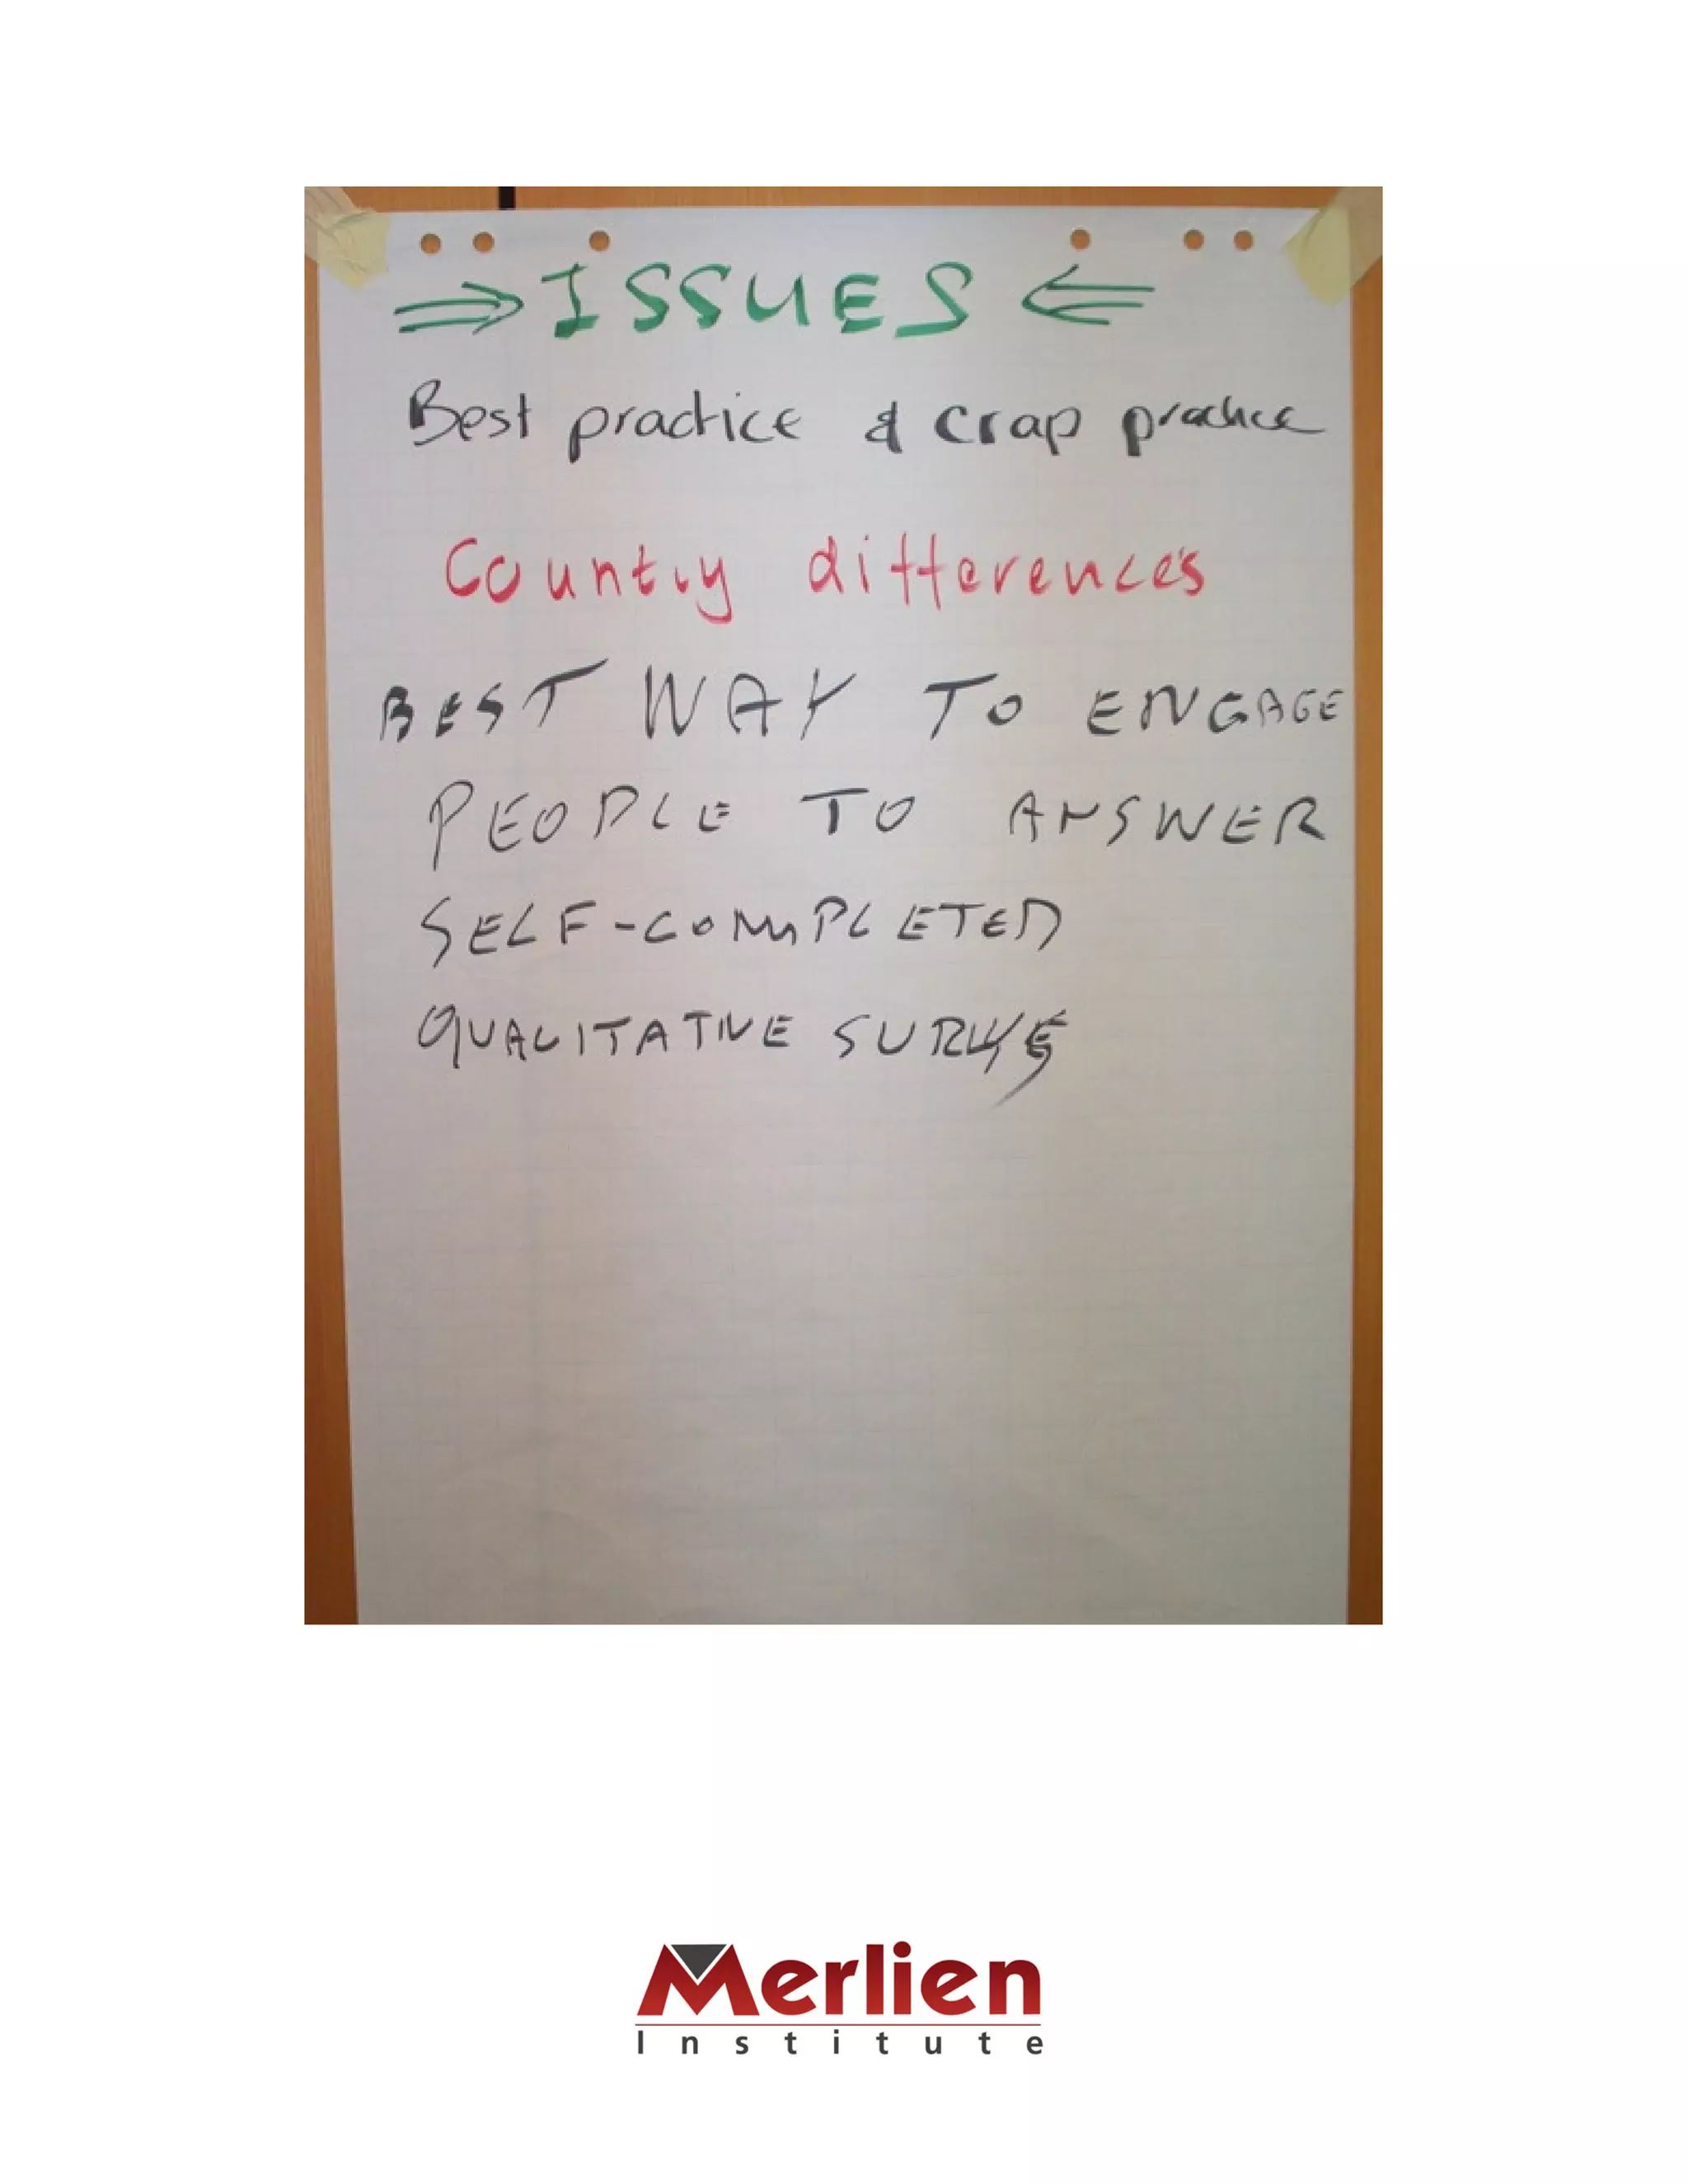 ⇒ ISSUES ⇐
Best practice & crap practice
Country differences
BEST WAY TO ENGAGE
PEOPLE TO ANSWER
SELF-COMPLETED
QUALITATIVE
Merlien
Institute